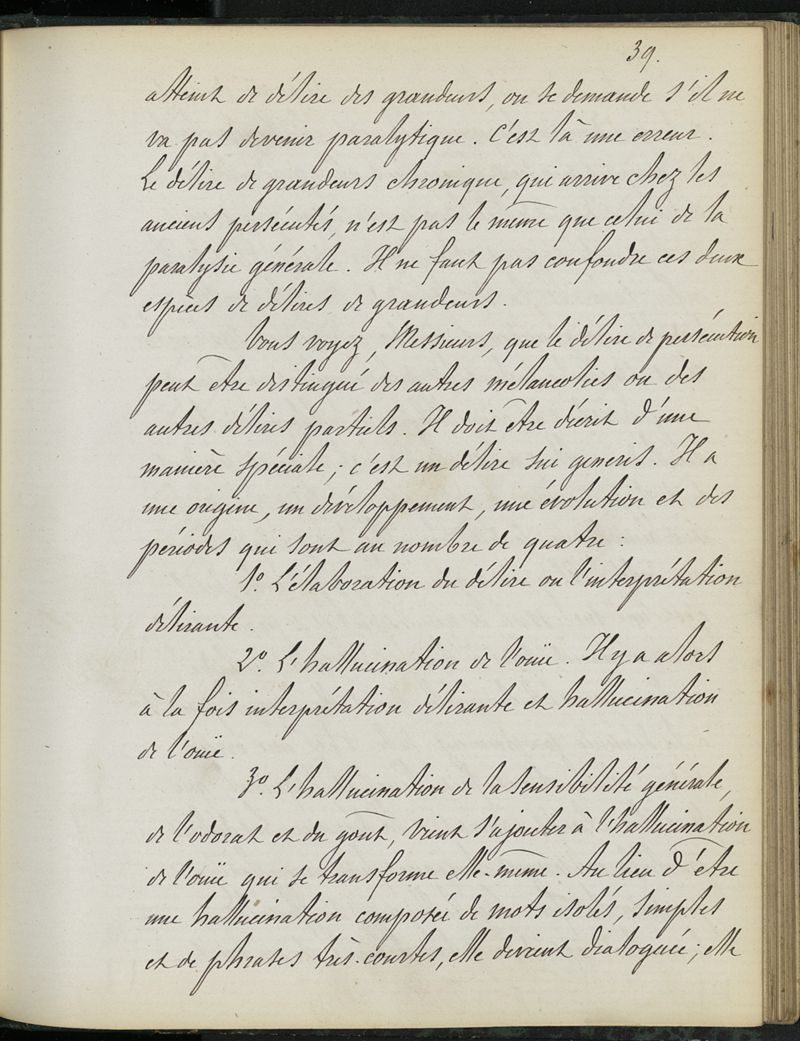 39.
atteint de délire des grandeurs, on se demande s'il ne
va pas devenir paralytique. C'est là une erreur.
Le délire de grandeurs chronique, qui arrive chez les
anciens persécutés, n'est pas le même que celui de la
paralysie générale. Il ne faut pas confondre ces deux
espèces de délires de grandeurs.
Vous voyez, Messieurs, que le délire de persécution
peut être distingué des autres mélancolies ou des
autres délires partiels. Il doit être décrit d'une
manière spéciale; c'est un délire sui generis. Il a
une origine, un développement, une évolution et des
périodes qui sont au nombre de quatre:
1º. L'élaboration du délire ou l'interprétation
délirante.
2º. L'hallucination de l'ouïe. Il y a alors
à la fois interprétation délirante et hallucination
de l'ouïe.
3º. L'hallucination de la sensibilité générale,
de l'odorat et du goût, vient s'ajouter à l'hallucination
de l'ouïe qui se transforme elle-même. Au lieu d'être
une hallucination composée de mots isolés, simples
et de phrases très-courtes, elle devient dialoguée; elle